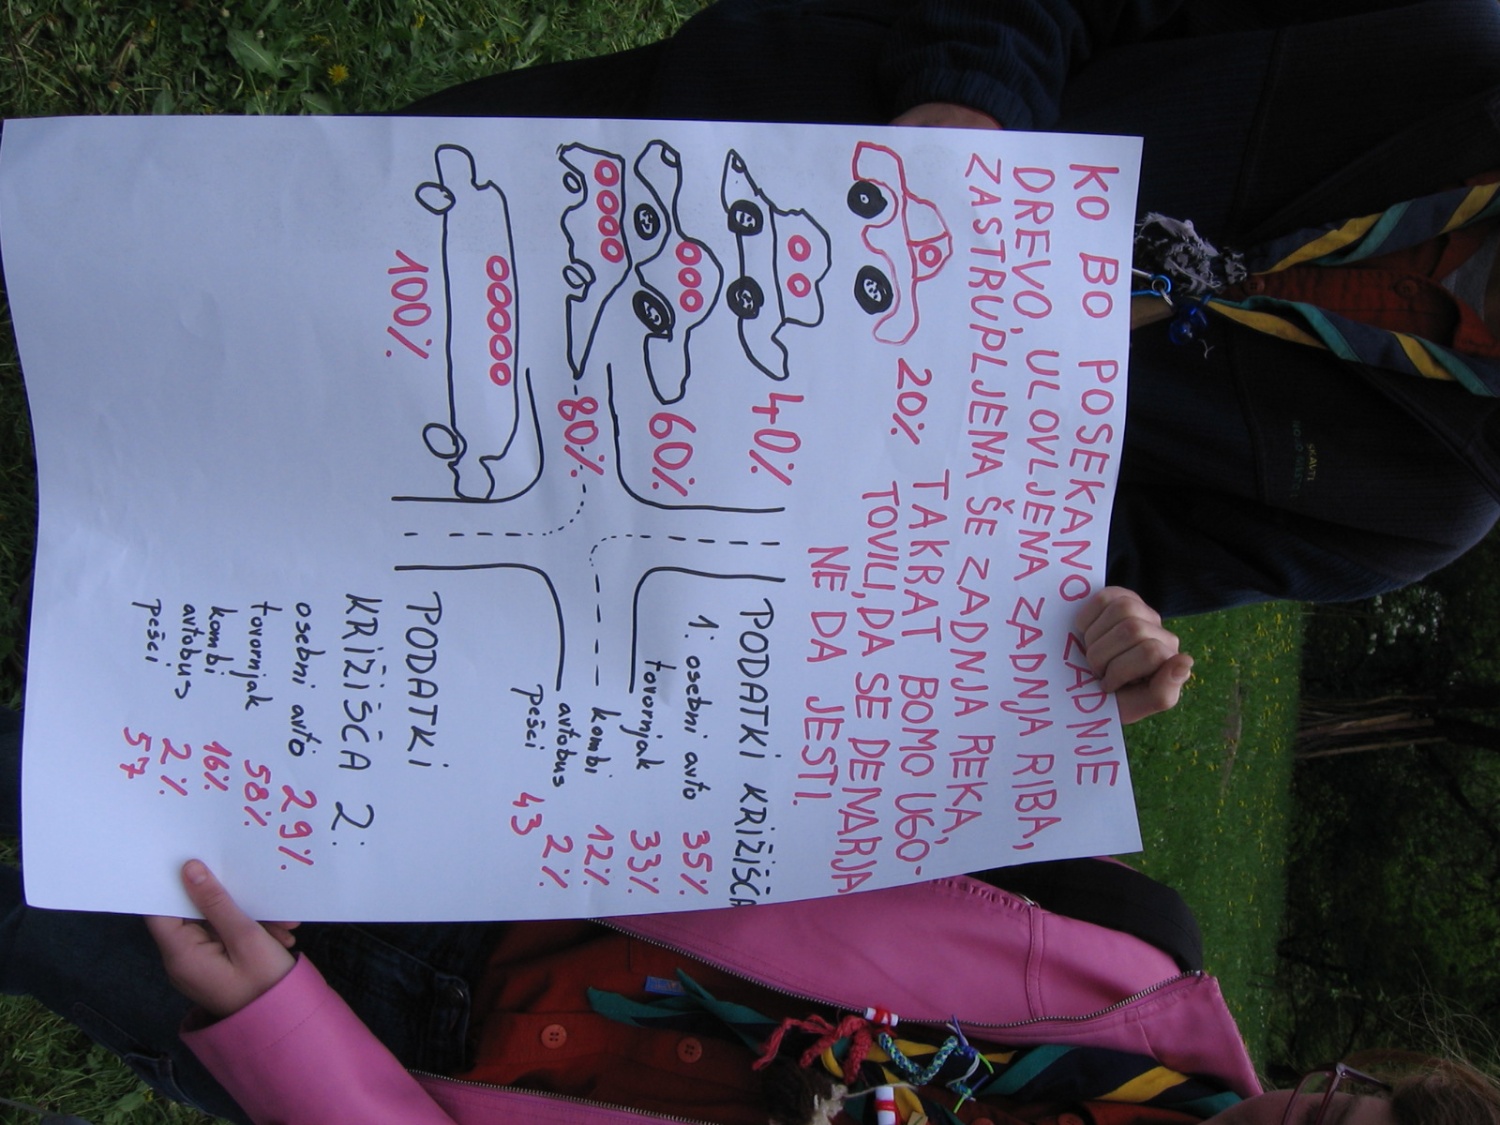 KO BO POSEKANO ZADNJE
DREVO, ULOVLJENA ZADNJA RIBA,
ZASTRUPLJENA ŠE ZADNJA REKA,
TAKRAT BOMO UGO-
TOVILI, DA SE DENARJA
NE DA JESTI.
20%
40%
60%
80%
100%
PODATKI KRIŽIŠČA
1: osebni avto 35%
tovornjak 33%
kombi 12%
avtobus 2%
pešci 43
PODATKI
KRIŽIŠČA 2:
osebni avto 29%
tovornjak 58%
kombi 16%
avtobus 2%
pešci 57